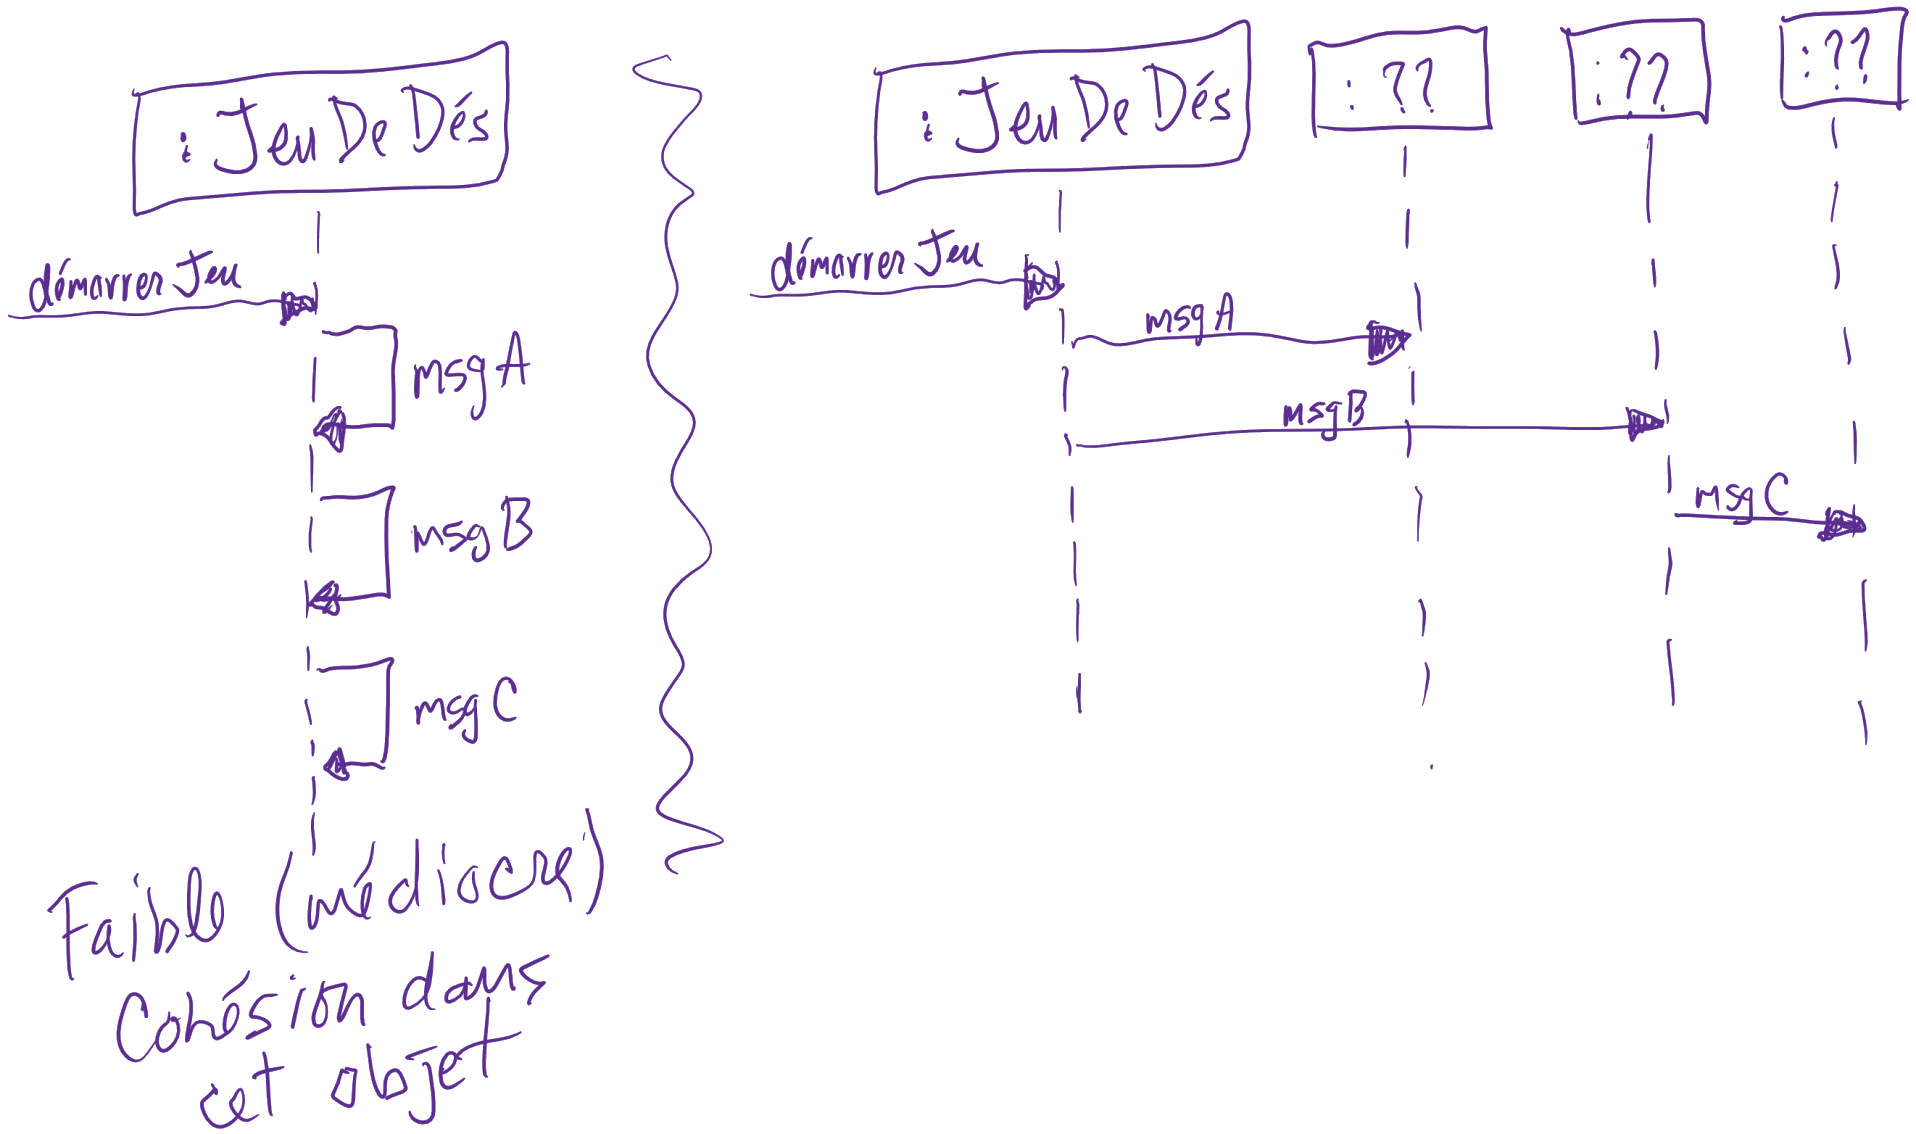 : JeuDeDés
démarrerJeu
msgA
msgB
msgC
Faible (médiocre)
Cohésion dans
cet objet
: JeuDeDés
: ??
: ??
: ??
démarrerJeu
msgA
msgB
msgC